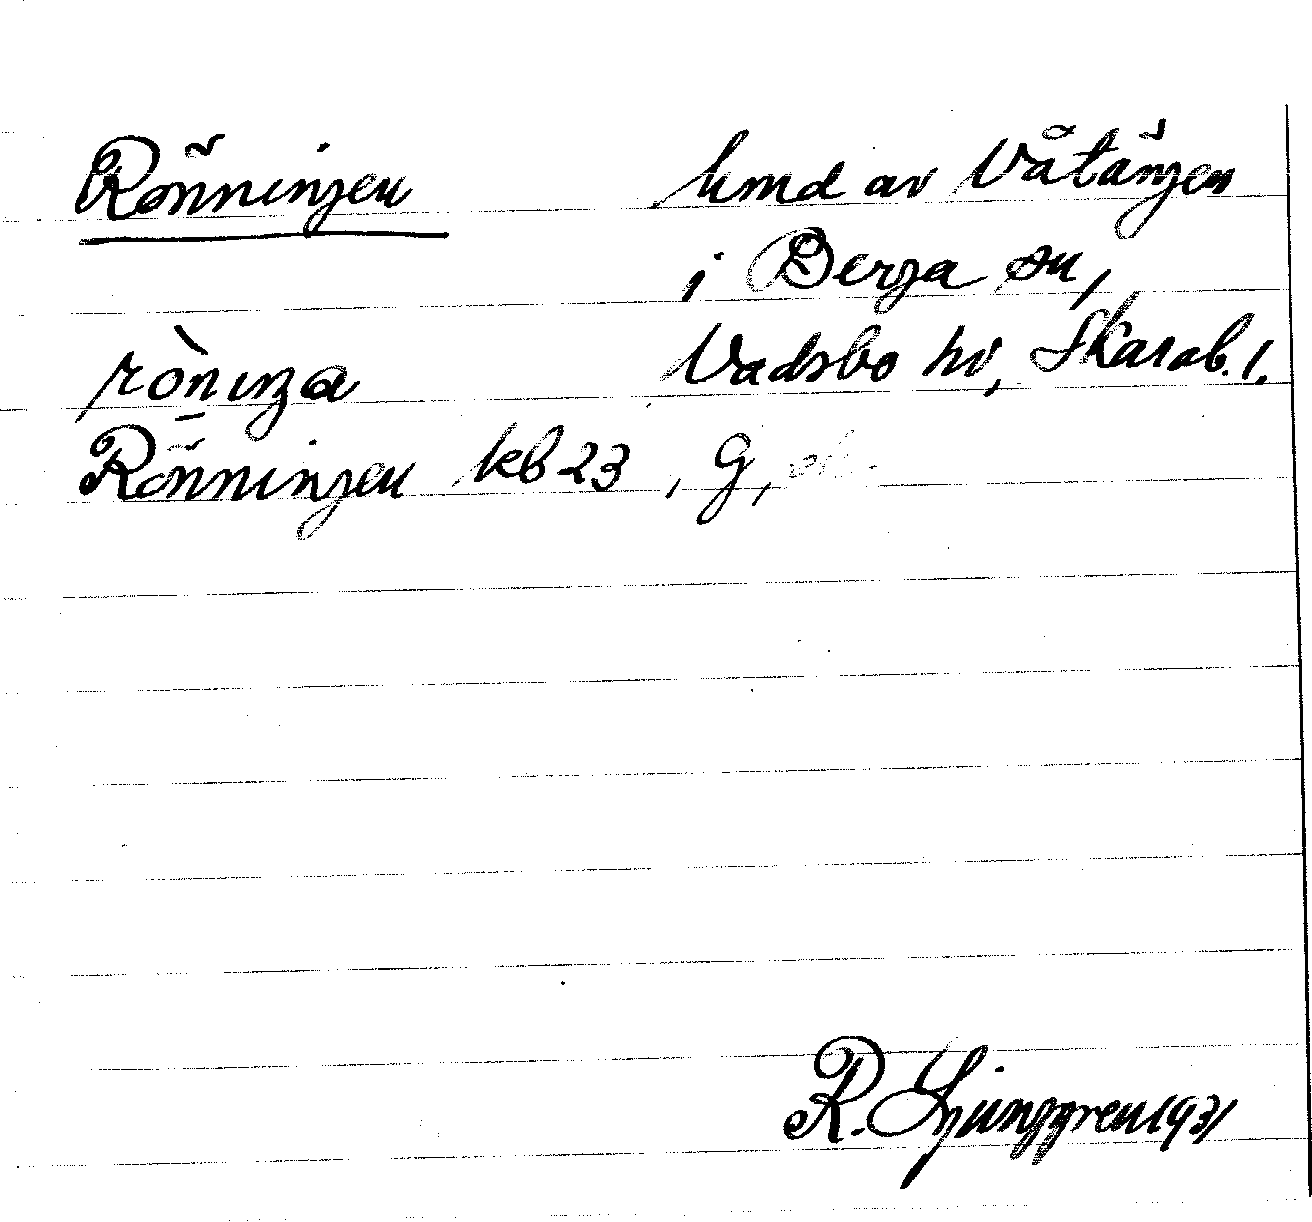 Rönningen lund av Våtängen
i Berga sn,
rònıŋa Vadsbo hd, Skarab. l.
Rönningen kb 23, G,
R. Ljunggren 1931